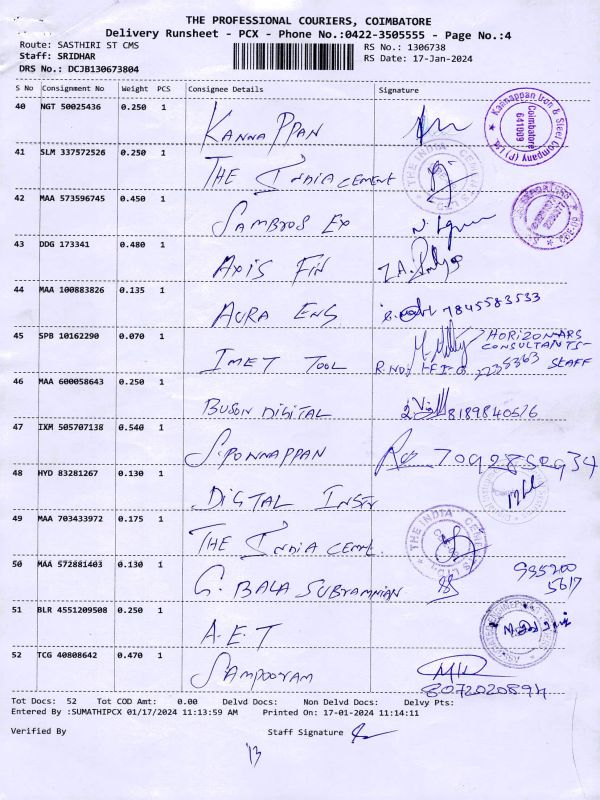 THE PROFESSIONAL COURIERS, COIMBATORE
Delivery Runsheet - PCX - Phone No.:0422-3505555 - Page No.:4
Route: SASTHIRI ST CMS RS No.: 1306738
Staff: SRIDHAR RS Date: 17-Jan-2024
DRS No.: DCJB130673804
S No Consignment No Weight PCS Consignee Details Signature
40 NGT 50025436 0.250 1 KANNAPPAN
Kannappan Iron & Steel Company (P) Ltd Coimbatore 641009
41 SLM 337572526 0.250 1 THE INDIA CEMENT
THE INDIA CEMENTS LTD
42 MAA 573596745 0.450 1 SAMBROS EX
43 DDG 173341 0.480 1 AXIS FIN
44 MAA 100883826 0.135 1 AURA ENG 7845583533
45 SPB 10162290 0.070 1 IMET TOOL
CONSULTANTS- STAFF
46 MAA 600058643 0.250 1 DIGITAL
47 IXM 505707138 0.540 1 S.PONNAPPAN
48 HYD 83281267 0.130 1 DIGTAL
49 MAA 703433972 0.175 1 THE INDIA
THE INDIA CEMENTS LTD
50 MAA 572881403 0.130 1 G. BALA SUBRAMNIAN 935200 5617
51 BLR 4551209508 0.250 1 A.E.T
52 TCG 40808642 0.470 1 SAMPOORAM
Tot Docs: 52 Tot COD Amt: 0.00 Delvd Docs: Non Delvd Docs: Delvy Pts:
Entered By :SUMATHIPCX 01/17/2024 11:13:59 AM Printed On: 17-01-2024 11:14:11
Verified By Staff Signature
13